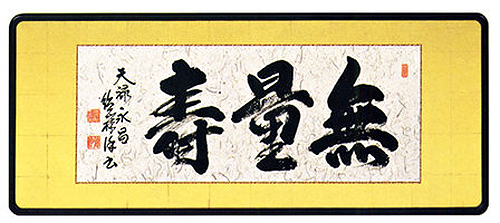 無量壽
天祿永昌